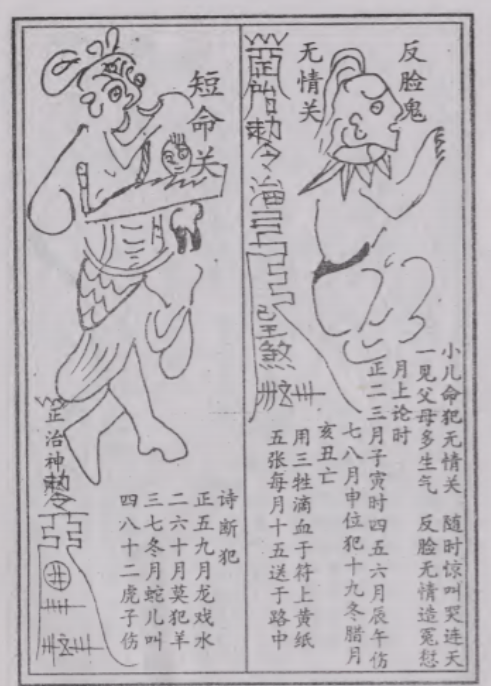 反脸鬼
无情关
小儿命犯无情关 随时惊叫哭连天
一见父母多生气 反脸无情造冤愆
月上论时
正二三月子寅时四五六月辰午伤
七八月申位犯十九冬腊月
亥丑亡
用三牲滴血于符上黄纸
五张每月十五送于路中
勅令治
煞
短命关
诗断犯
正五九月龙戏水
二六十月莫犯羊
三七冬月蛇儿叫
四八十二虎子伤
正治神勅令